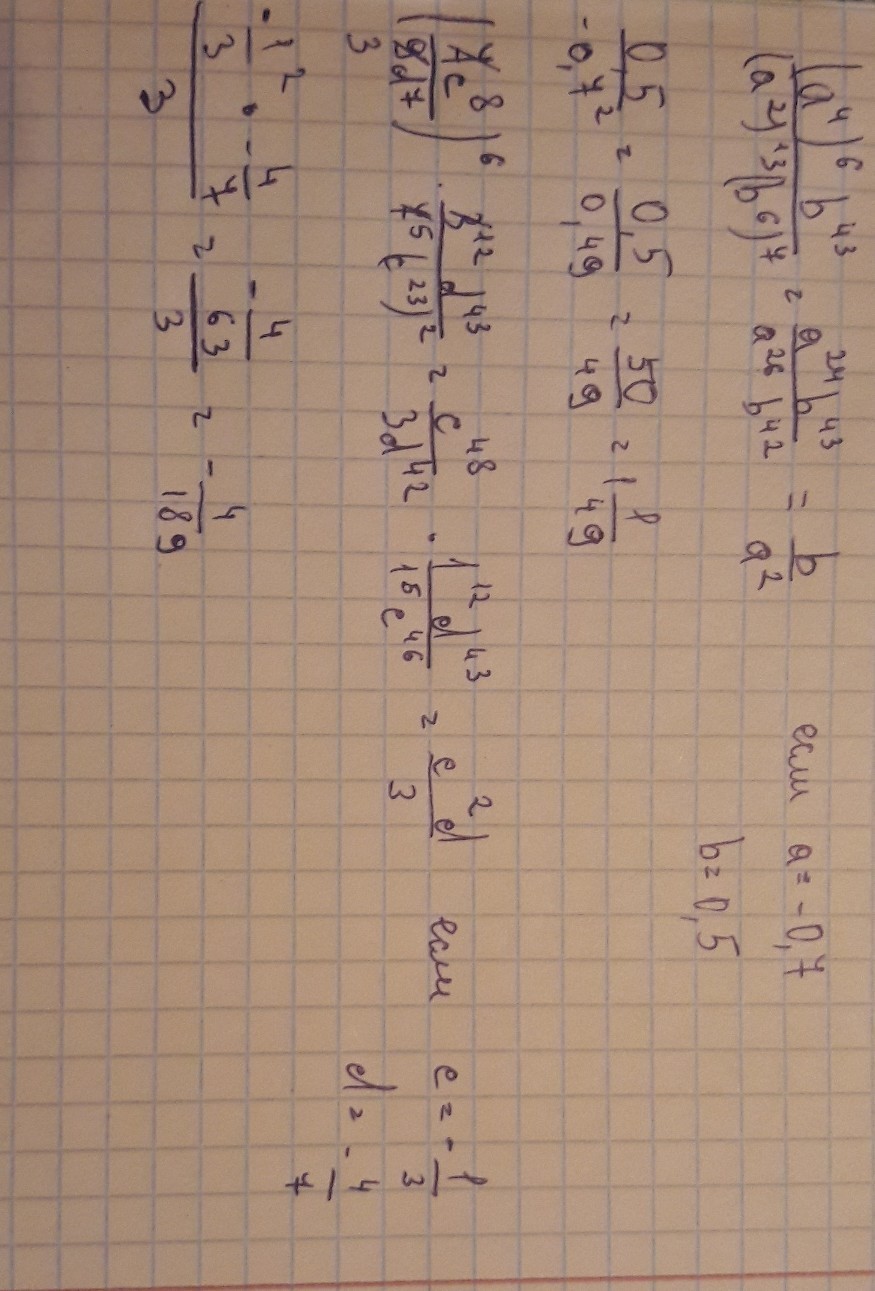 (a⁴)⁶ b⁴³ / (a²)¹³ (b⁶)⁷ = a²⁴ b⁴³ / a²⁶ b⁴² = b / a² если a = -0,7
b = 0,5
0,5 / -0,7² = 0,5 / 0,49 = 50 / 49 = 1 1/49
= c⁴⁸ / 3d⁴² · 1¹² d⁴³ / 1⁵ c⁴⁶ = c² d / 3 если c = - 1/3
d = - 4/7
- 1/3² · - 4/7 / 3 = - 4/63 / 3 = - 4/189